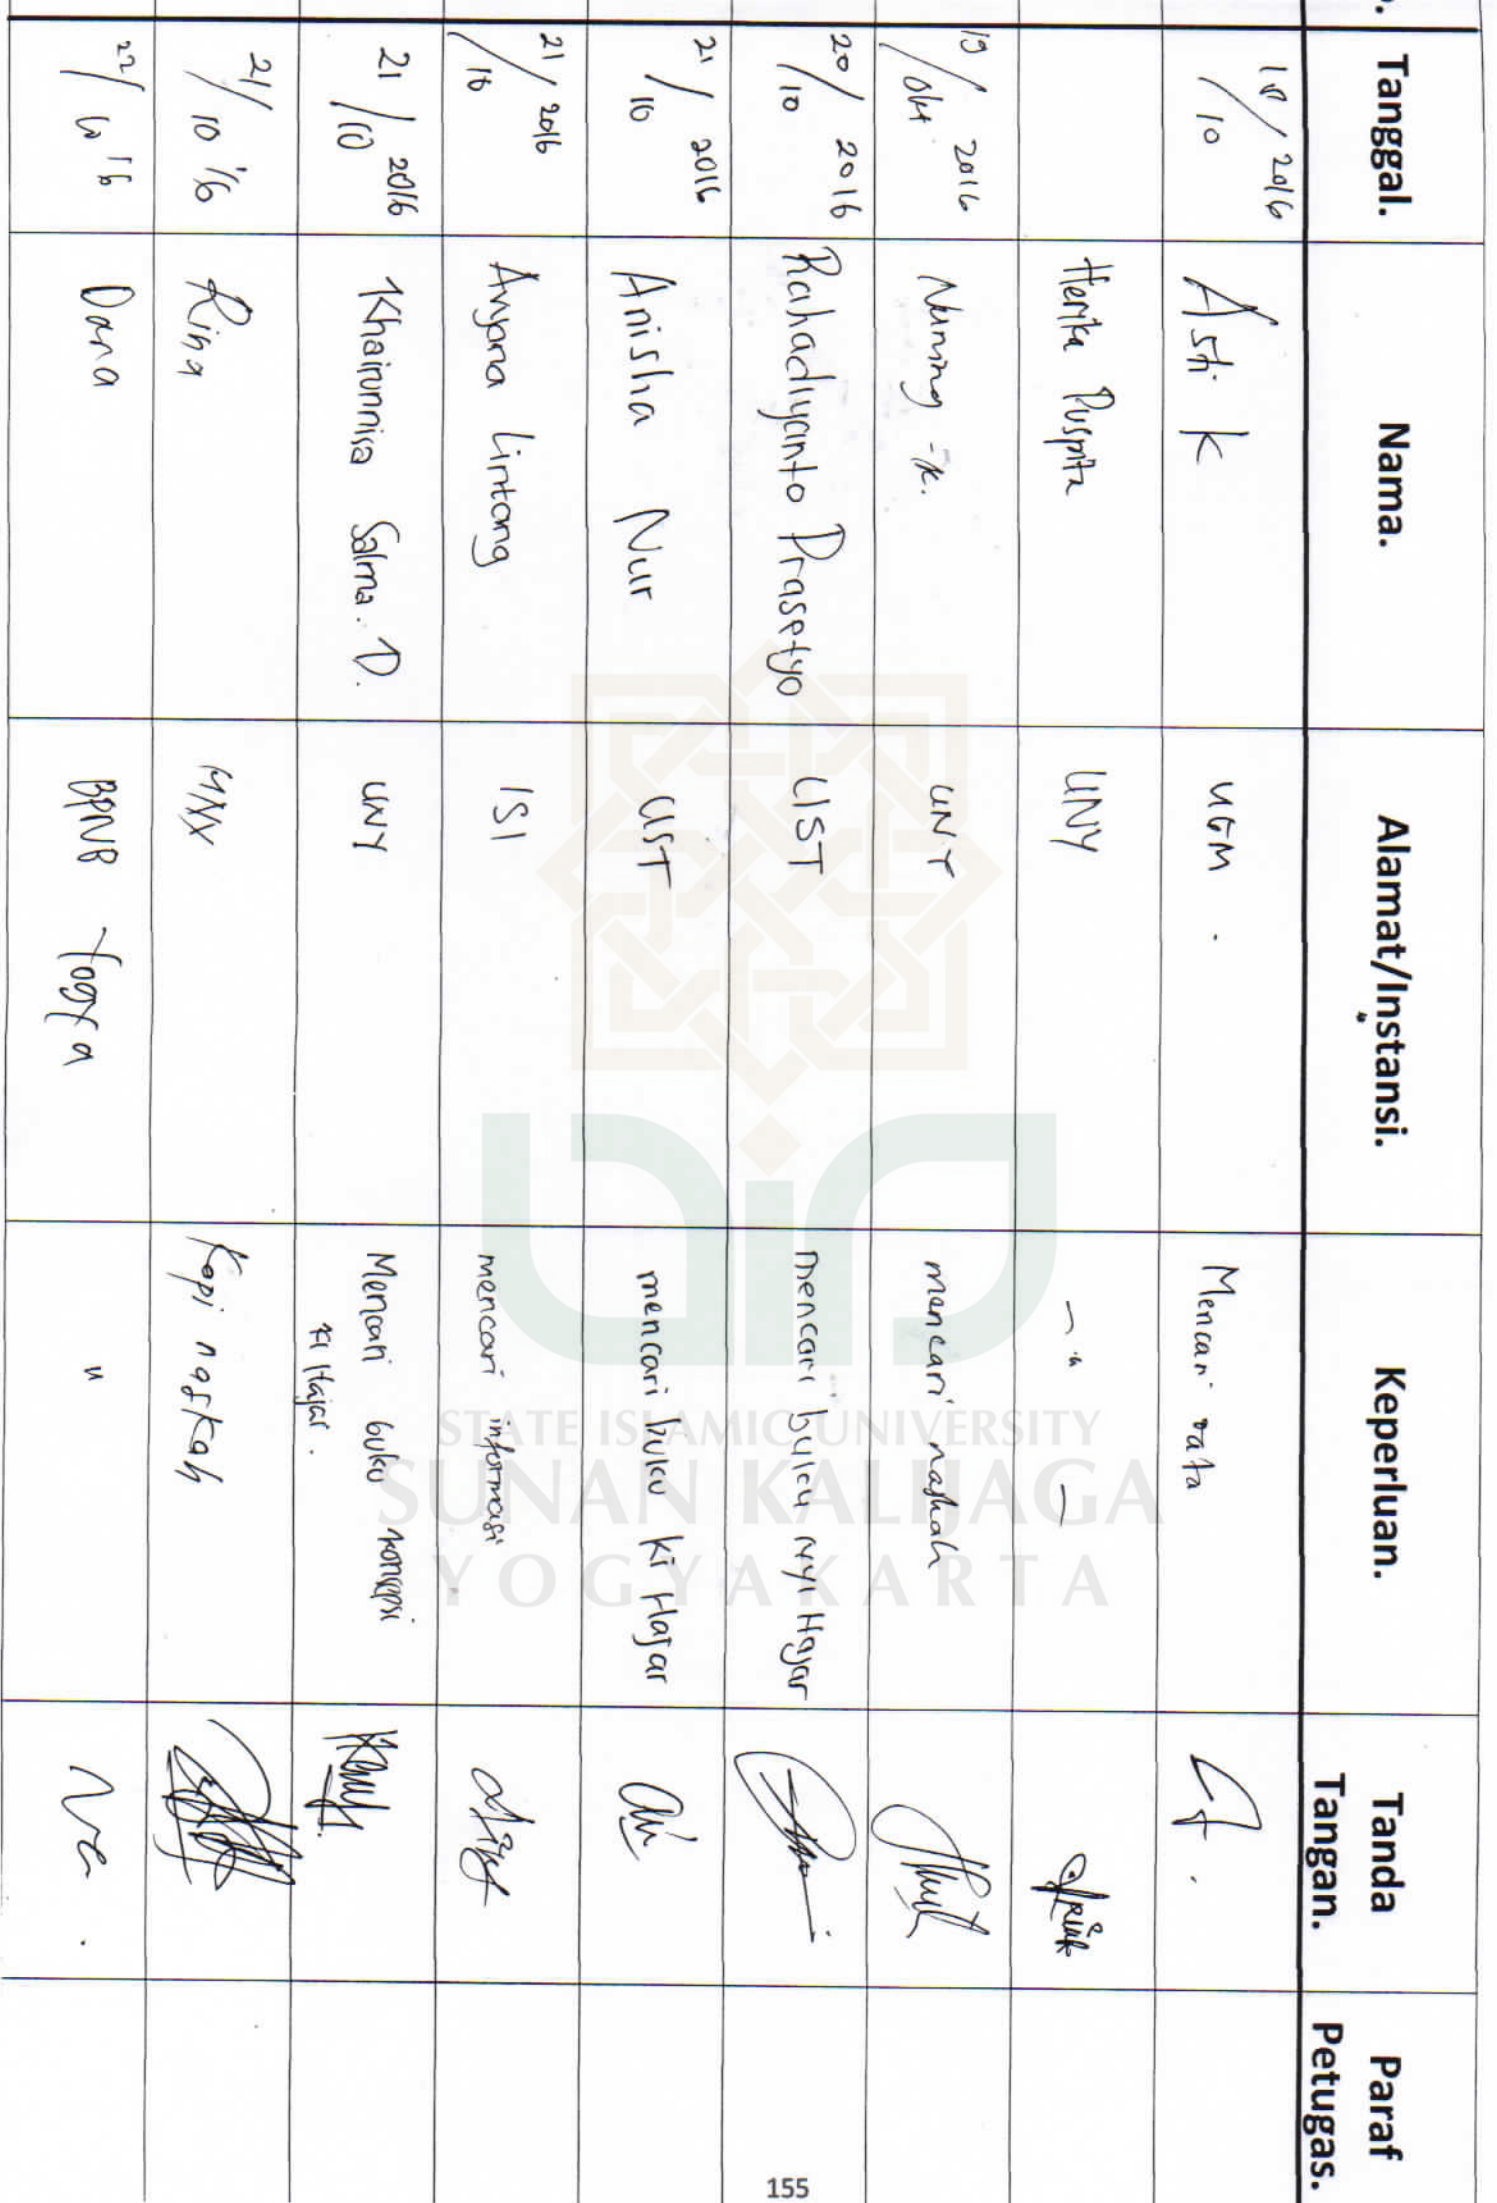 Tanggal. Nama. Alamat/Instansi. Keperluan. Tanda Tangan. Paraf Petugas.
18/10 2016 Asti K UGM. Mencari data
Herika Puspita UNY — " —
19/okt 2016 Nuning -k. UNY mencari naskah
20/10 2016 Rahadiyanto Prasetyo UST mencari buku nyi Hajar
21/10 2016 Anisha Nur UST mencari buku ki Hajar
21/10 2016 Aryana Lintang ISI mencari informasi
21/10 2016 Khairunnisa Salma. D. UNY Mencari buku konsepsi
Ki Hajar.
21/10 '16 Rina Kopi naskah
22/10 '16 Dana BPNB Yogya "
STATE ISLAMIC UNIVERSITY
SUNAN KALIJAGA
YOGYAKARTA
155